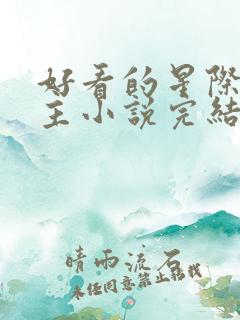 好看的星際
主小說完結
晴雨流石
未经同意禁止转载